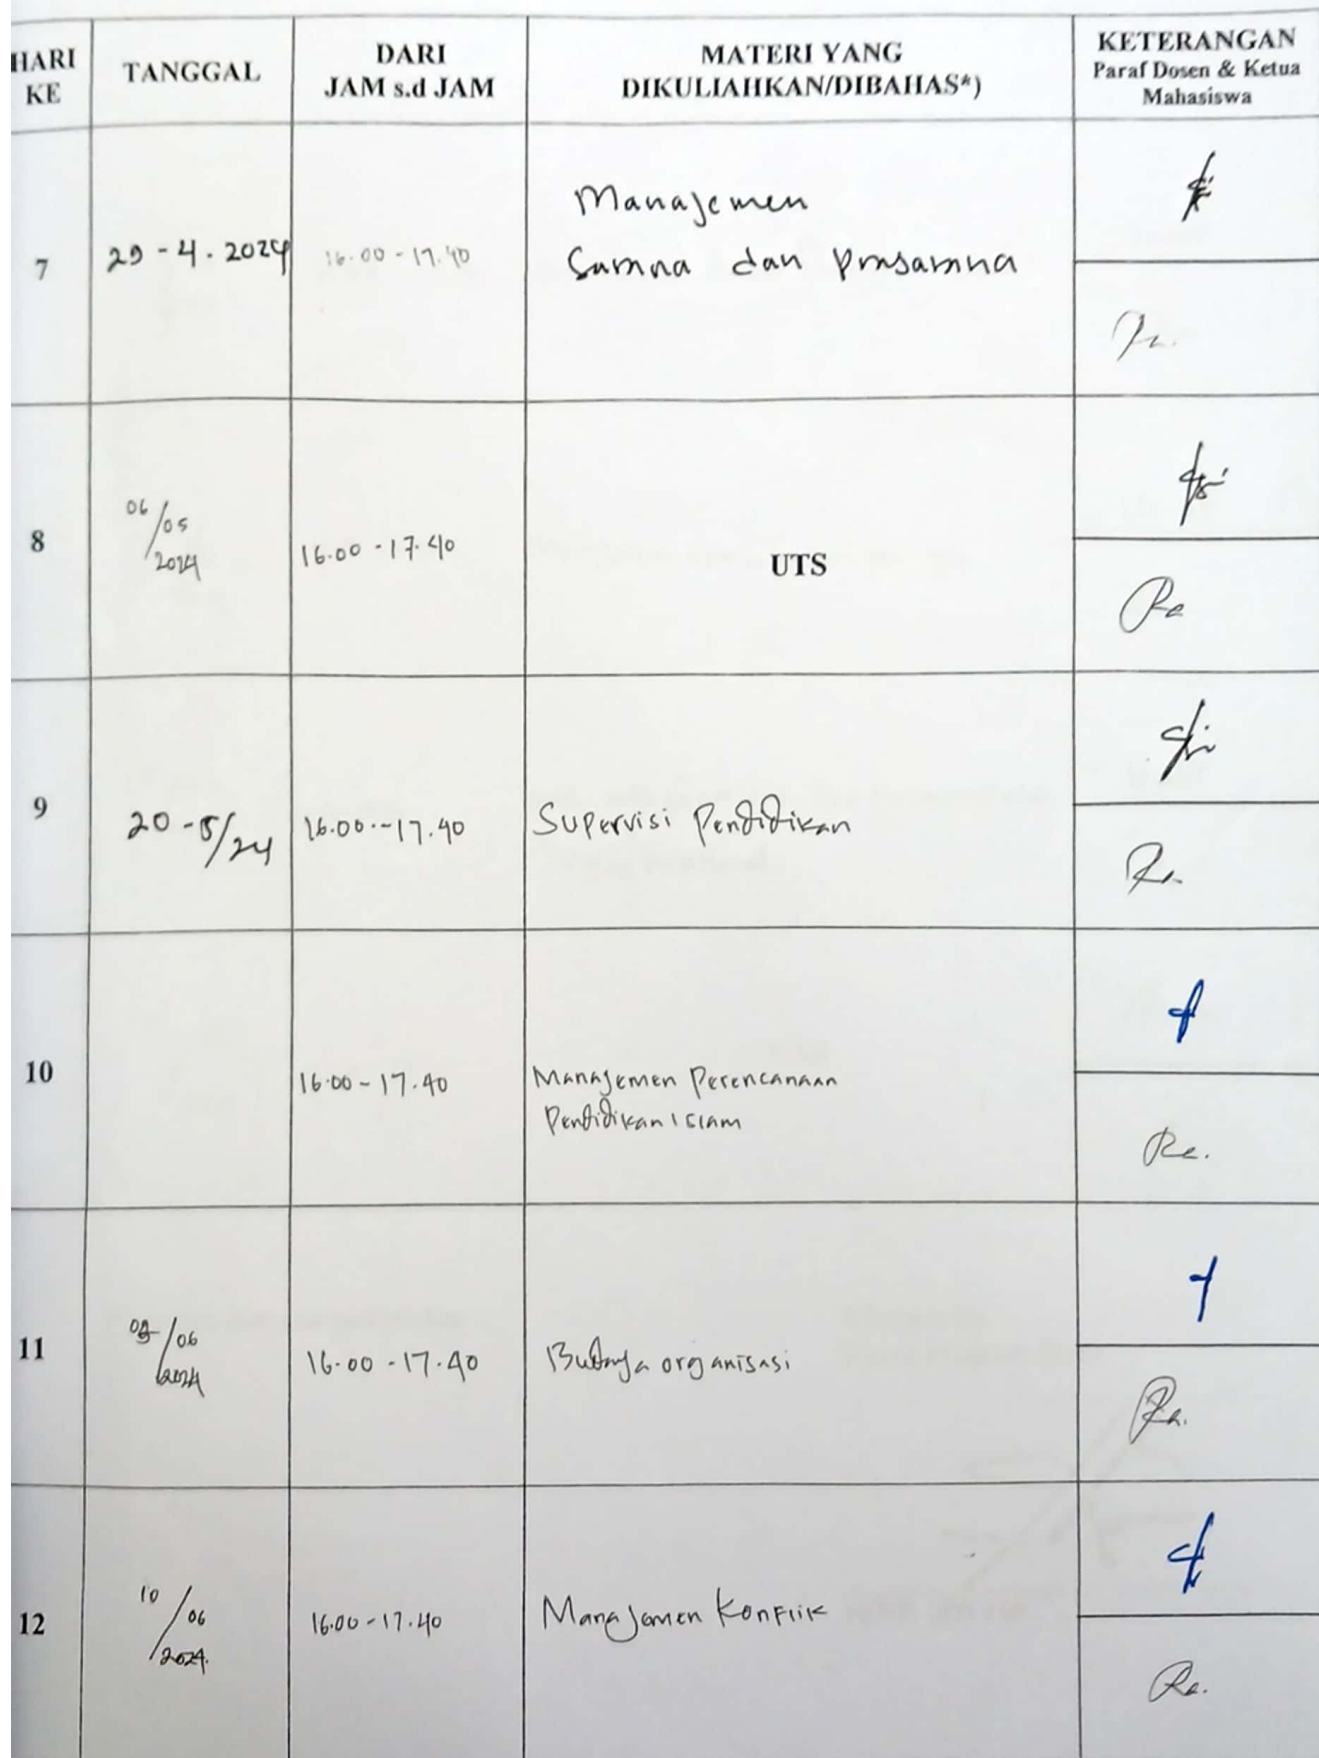 HARI
KE
TANGGAL
DARI
JAM s.d JAM
MATERI YANG
DIKULIAHKAN/DIBAHAS*)
KETERANGAN
Paraf Dosen & Ketua
Mahasiswa
7
29-4.2024
16.00-17.40
Manajemen
Sarana dan prasarana
8
06/05
2024
16.00-17.40
UTS
9
20-5/24
16.00-17.40
Supervisi Pendidikan
10
16.00-17.40
Manajemen Perencanaan
Pendidikan Islam
11
/06
2024
16.00-17.40
Budaya organisasi
12
10/06
2024.
16.00-17.40
Manajemen Konflik